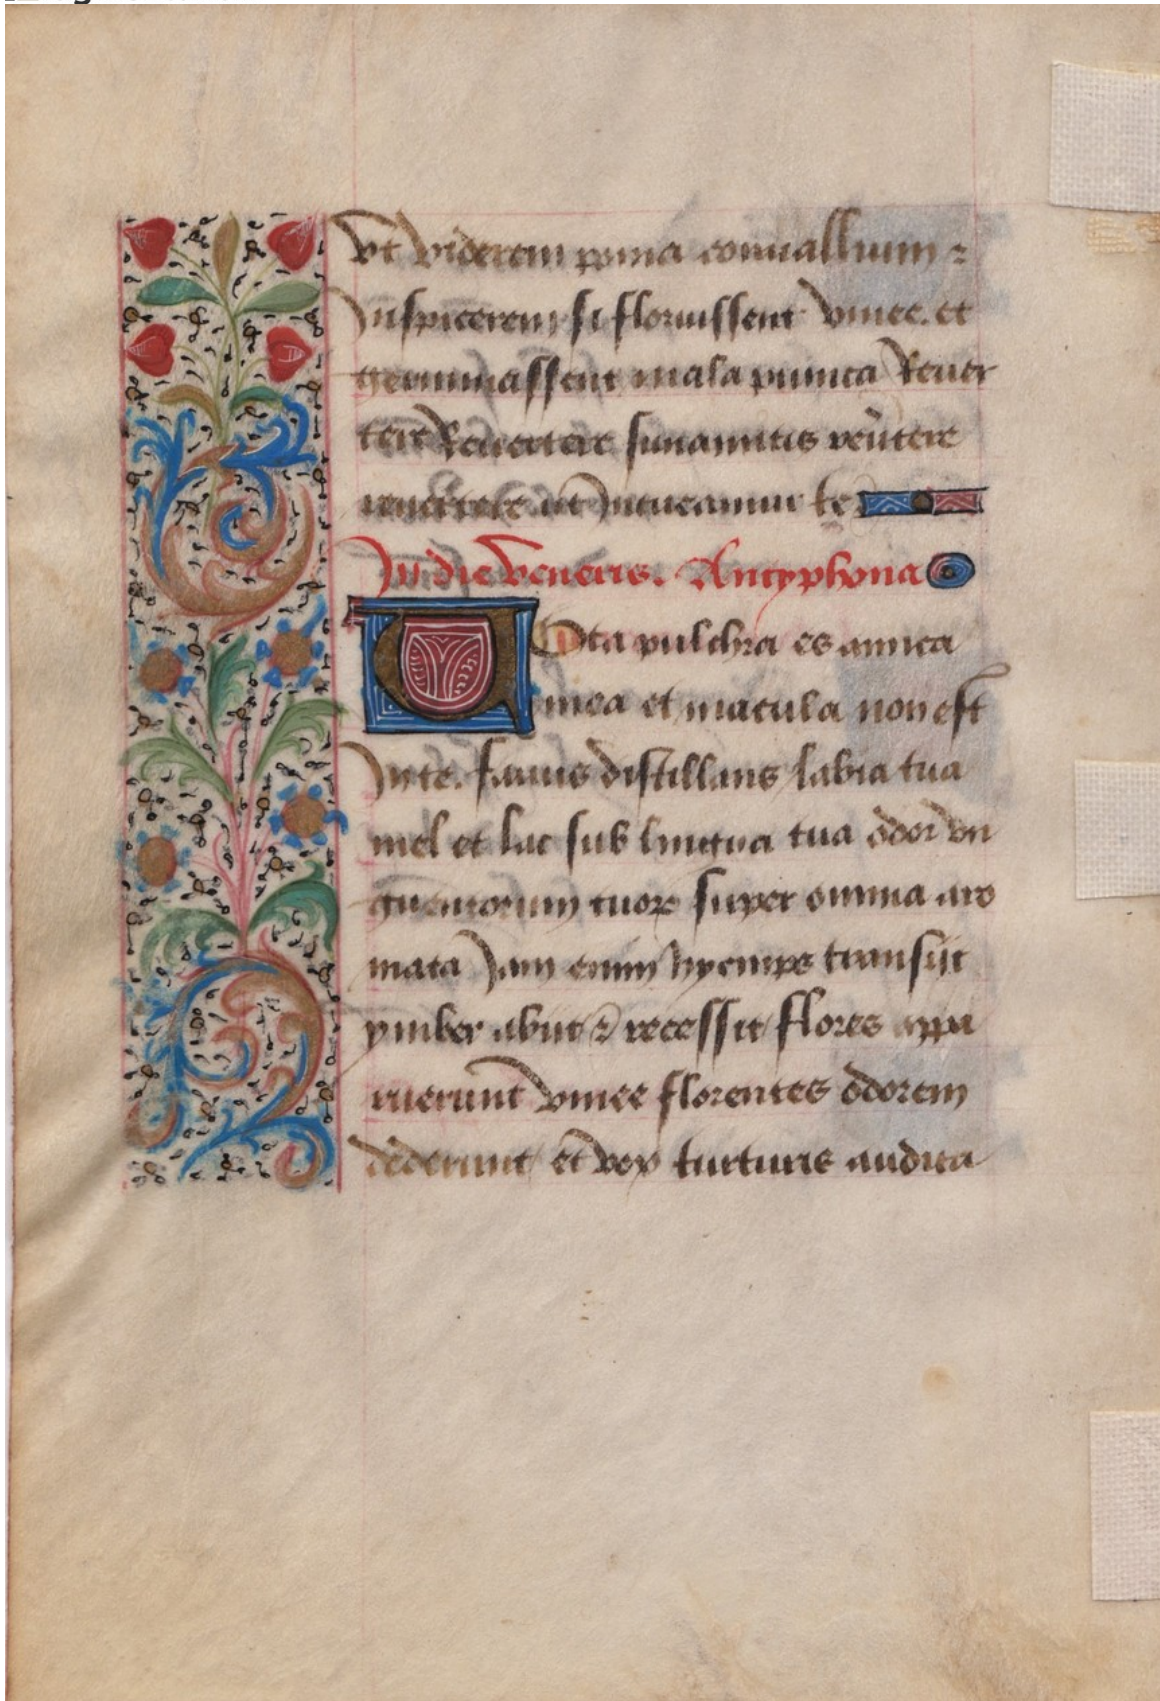 vt viderem poma conuallium ⁊
Inspicerem si floruissent vinee. et
germinassent mala punica Reuer
tere Reuertere sunamitis
reuertere ut Intueamur te
In die veneris. Antyphona
Tota pulchra es amica
mea et macula non est
In te. fauus distillans labia tua
mel et lac sub lingua tua odor vn
guentorum tuoꝝ super omnia aro
mata Jam enim hyemps transijt
ymber abijt ⁊ recessit flores appa
ruerunt vinee florentes odorem
dederunt et vox turturis audita